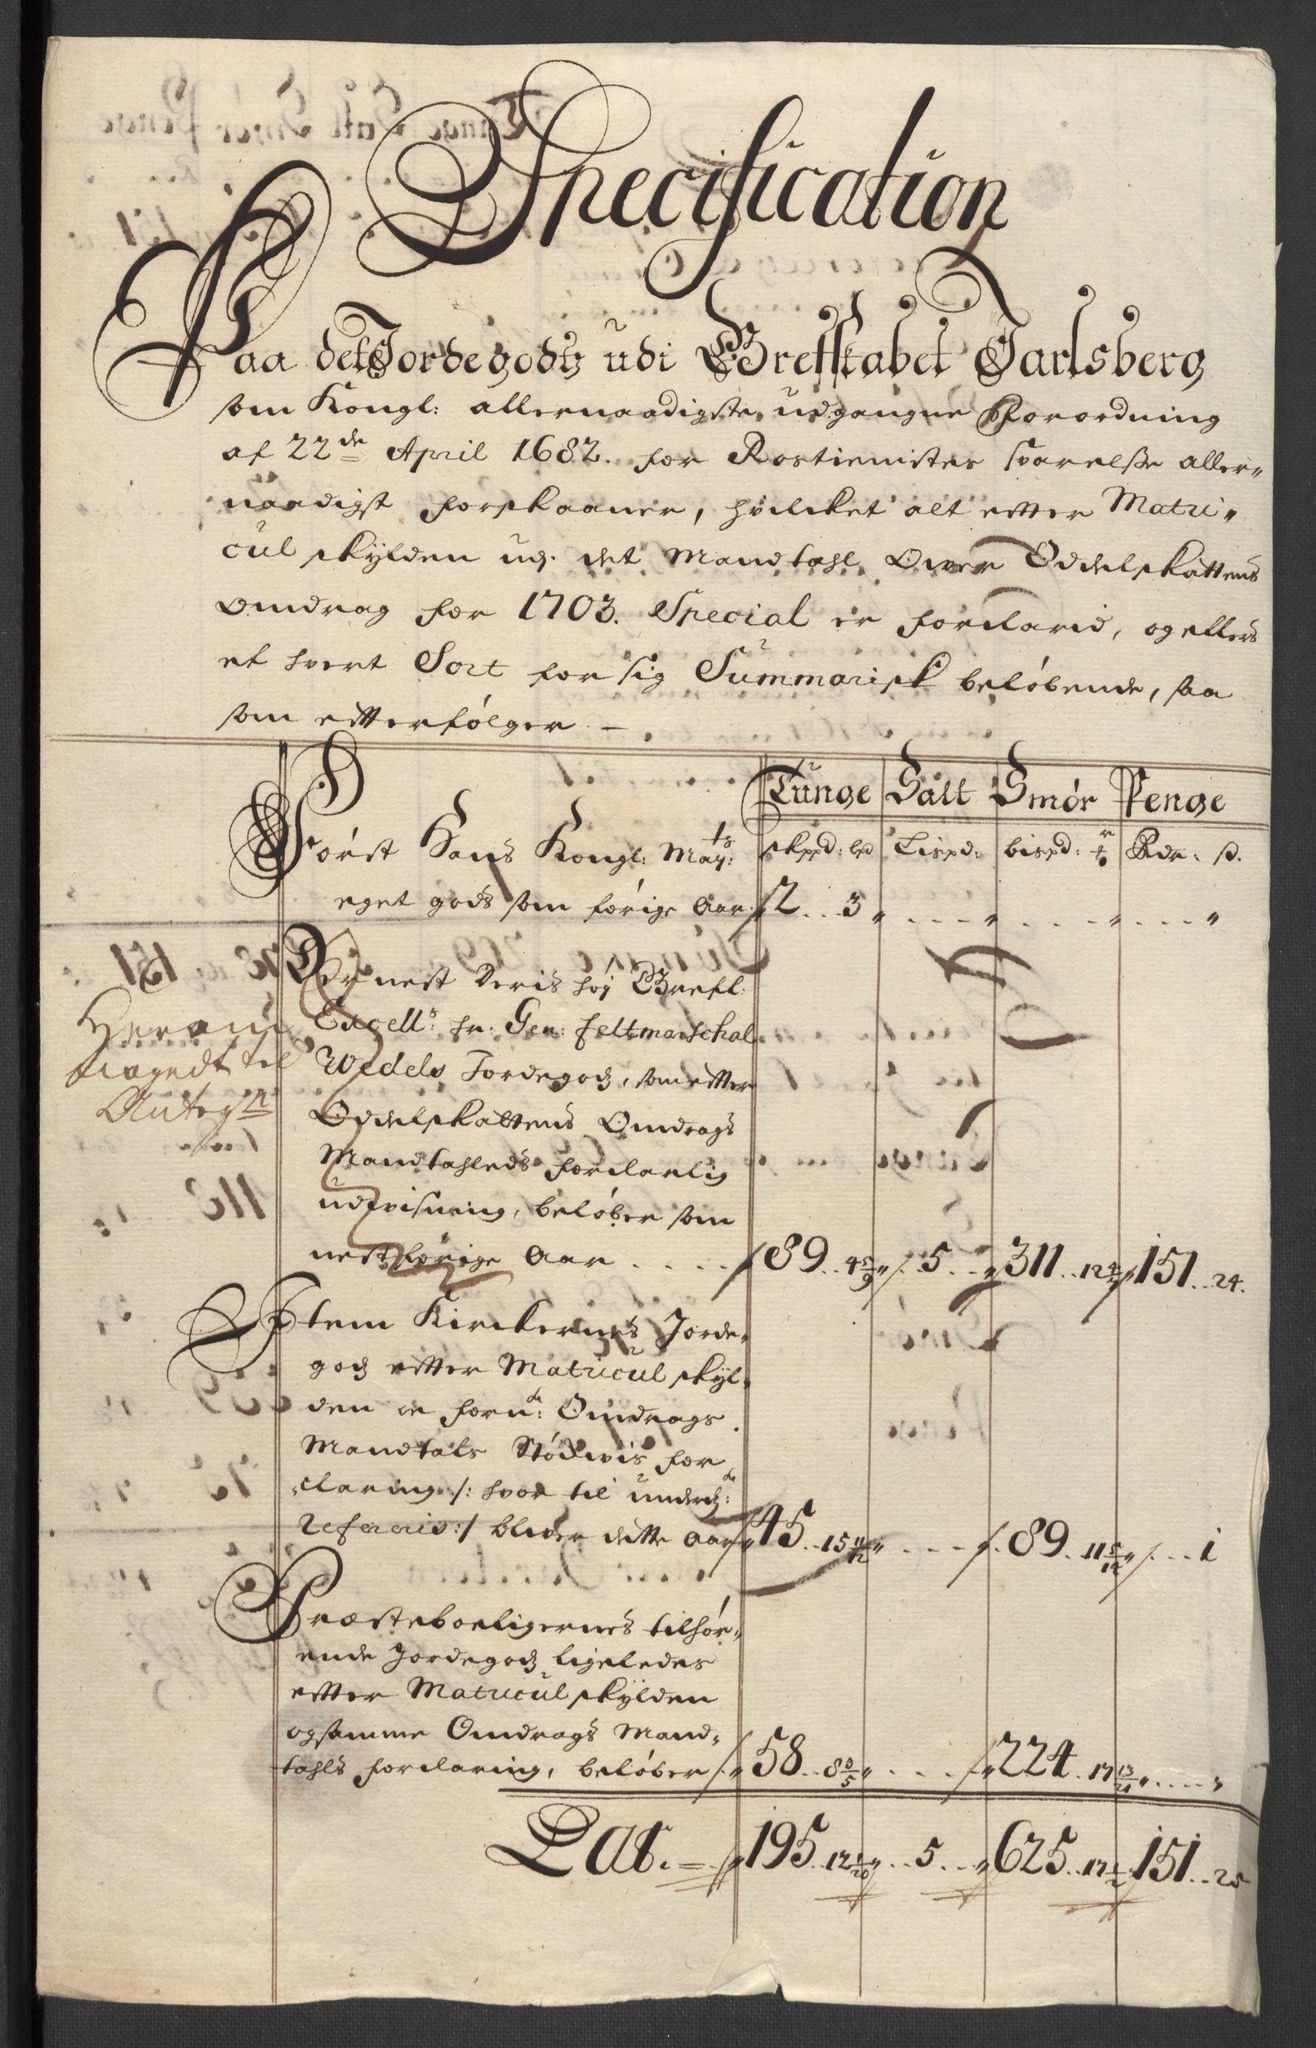 Specification
Paa det Jordegodtz udi Grefskabet Jarlsberg
som Kongl: allernaadigste udgangne Forordning
af 22de April 1682. for Rostienistes svarelsse aller-
naadigst forskaaner, hvilcket alt efter Matri-
cul skylden udj det Mandtahl over Oddelskattens
Omdrag for 1703. Special er forclarid, og ellers
et hvert Sort for sig Summarisk beløbende, saa
som efterfølger -
Tunge Salt Smør Penge
skppd: lpd Lispd: bispd: Rdr. s.
Først Hans Kongl: Mayts:
eget gods som forige Aar 2 .. 3
Dernest Deris høy Grefl:
Excell: hr: Gen: feltmarschal
Wedels Jordegodz, som efter
Oddelskattens Omdrags
Mandtahleds forclarlig
udvisning, beløber som
nestforige Aar .... 89 .. 4 5/9 .. 5 .. 311 .. 12 151 .. 24.
Hermed
til
Item Kirckernes Jorde-
godz efter Matricul skyl-
den er fornde: Omdrags
Mandtals Stødvis for
claring /: hvor til underdt:
refereris :/ bliver dette Aar 45 .. 15 11/12 .... 89 .. 11 5/12 ... 1
Præsteboeligernes tilhør-
ende Jordegodz ligeledes
efter Matricul skylden
og samme Omdrags Mand-
tahls forclaring, beløber 58 .. 8 3/5 .... 224 .. 17 13/21 ....
Lat. 195 .. 12 1/20 .. 5 .. 625 .. 17 1/2 151 .. 25